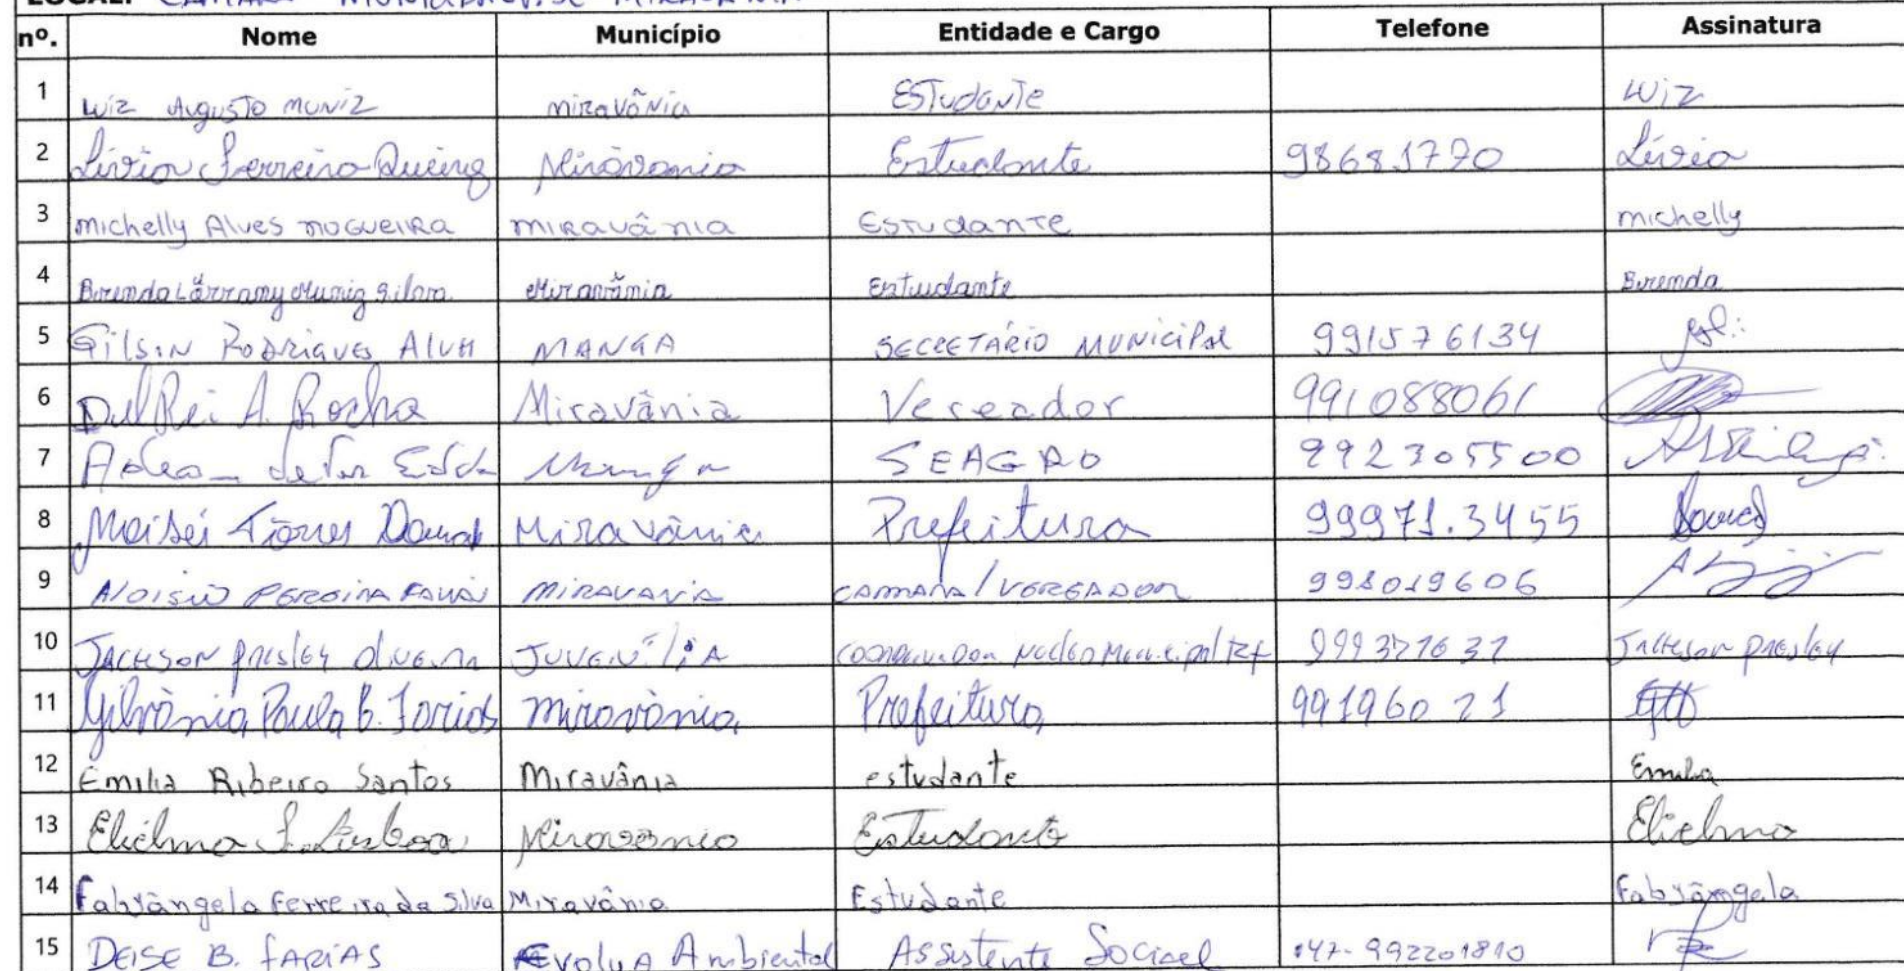 LOCAL: CÂMARA MUNICIPAL DE MIRAVÂNIA
nº. Nome Município Entidade e Cargo Telefone Assinatura
1 Luiz Augusto Muniz Miravânia Estudante Luiz
2 Lívia Ferreira Queiroz Miravania Estudante 98681770 Lívia
3 Michelly Alves Nogueira Miravânia Estudante Michelly
4 Brenda Lärrany Muniz Silva Miravânia Estudante Brenda
5 Gilson Rodrigues Alves MANGA SECRETÁRIO MUNICIPAL 991576134
6 DelRei A. Rocha Miravânia Vereador 991088061
7 Manga SEAGRO 992305500
8 Moisés Torres Miravânia Prefeitura 99971.3455
9 Aloisio Pereira Farias Miravania CAMARA/VEREADOR 998019606
10 Jackson Presley Oliveira JUVENÍLIA Coordenador Nucleo Municipal 999371637 Jackson Presley
11 Gilvânia Paula B. Farias Miravânia Prefeitura 991960 21
12 Emilia Ribeiro Santos Miravânia estudante Emilia
13 Elielma S. Lisboa Miravânia Estudante Elielma
14 Fabrângela Ferreira da Silva Miravânia Estudante Fabrângela
15 DEISE B. FARIAS Evolua Ambiental Assistente Social 047-992201810